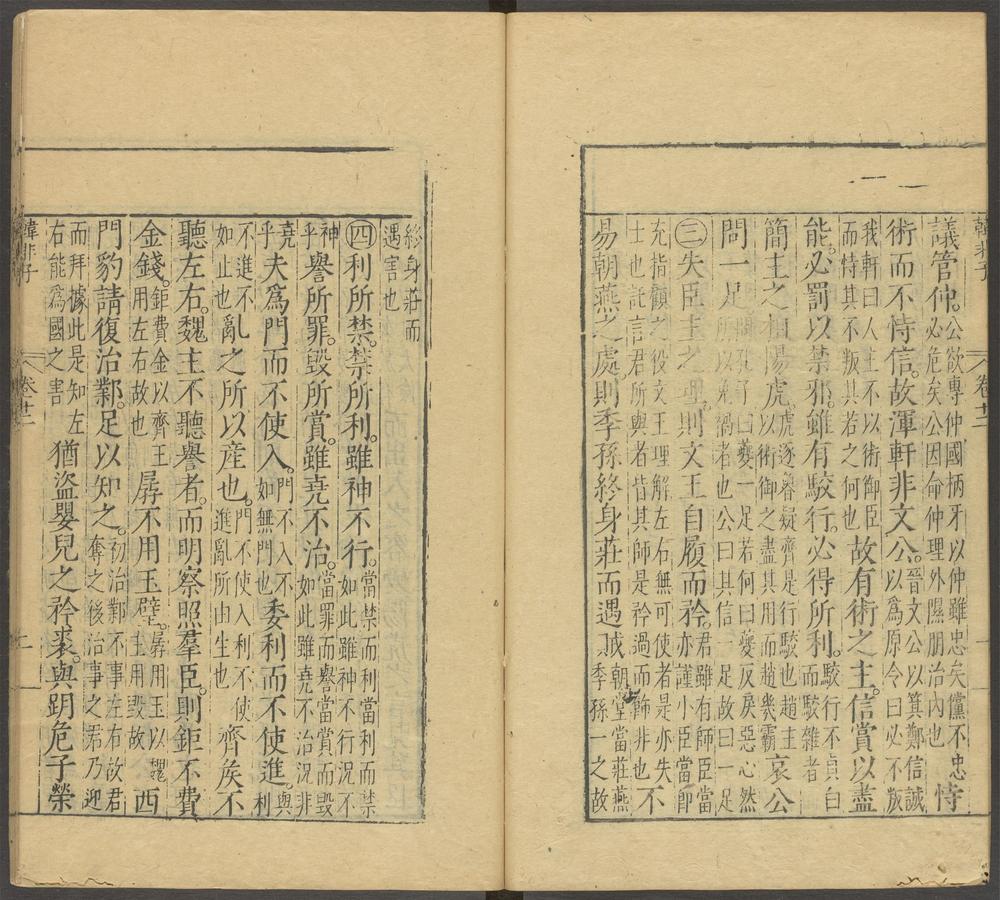 韓非子 卷十二
議管仲。公欲專仲國柄牙以仲雖忠矣儻不忠必危矣公因命仲理外隰朋治內也恃
術而不恃信。故渾軒非文公。晉文公以箕鄭信誠以爲原令曰必不叛
我軒曰人主不以術御臣而恃其不叛其若之何也故有術之主。信賞以盡
能。必罰以禁邪。雖有駮行。必得所利。駮行不貞白而駮雜者
簡主之相陽虎。虎逐魯疑齊是行駮也趙主以術御之盡其用而趙幾霸哀公
問一足問孔子曰夔一足若何曰夔反戾惡心然所以免禍者也公曰其信一足故曰一足
㊂失臣主之理。則文王自履而矜。君雖有師臣當亦謹小臣當即
充指顧之役文王理解左右無可使者是亦失士也託言君所與者皆其師是矜過而飾非也不
易朝燕之處則季孫終身莊而遇賊朝堂當莊燕季孫一之故
終身莊而遇害也
㊃利所禁。禁所利。雖神不行。當禁而利當利而禁如此雖神不行況不
神乎譽所罪。毀所賞。雖堯不治。當罪而譽當賞而毀如此雖堯不治況非
堯乎夫爲門而不使入。門不入不如無門也委利而不使進。與利
不進不如止也亂之所以産也。門不使入利不使進亂所由生也齊矦不
聽左右。魏主不聽譽者。而明察照羣臣。則鉅不費
金錢。鉅費金以齊王用左右故也孱不用玉璧。孱用玉以魏主用毀故西
門豹請復治鄴。足以知之。初治鄴不事左右故君奪之後治事之君乃迎
而拜據此是知左右能爲國之害猶盜嬰兒之矜裘。與跀危子榮
韓非子 卷十二